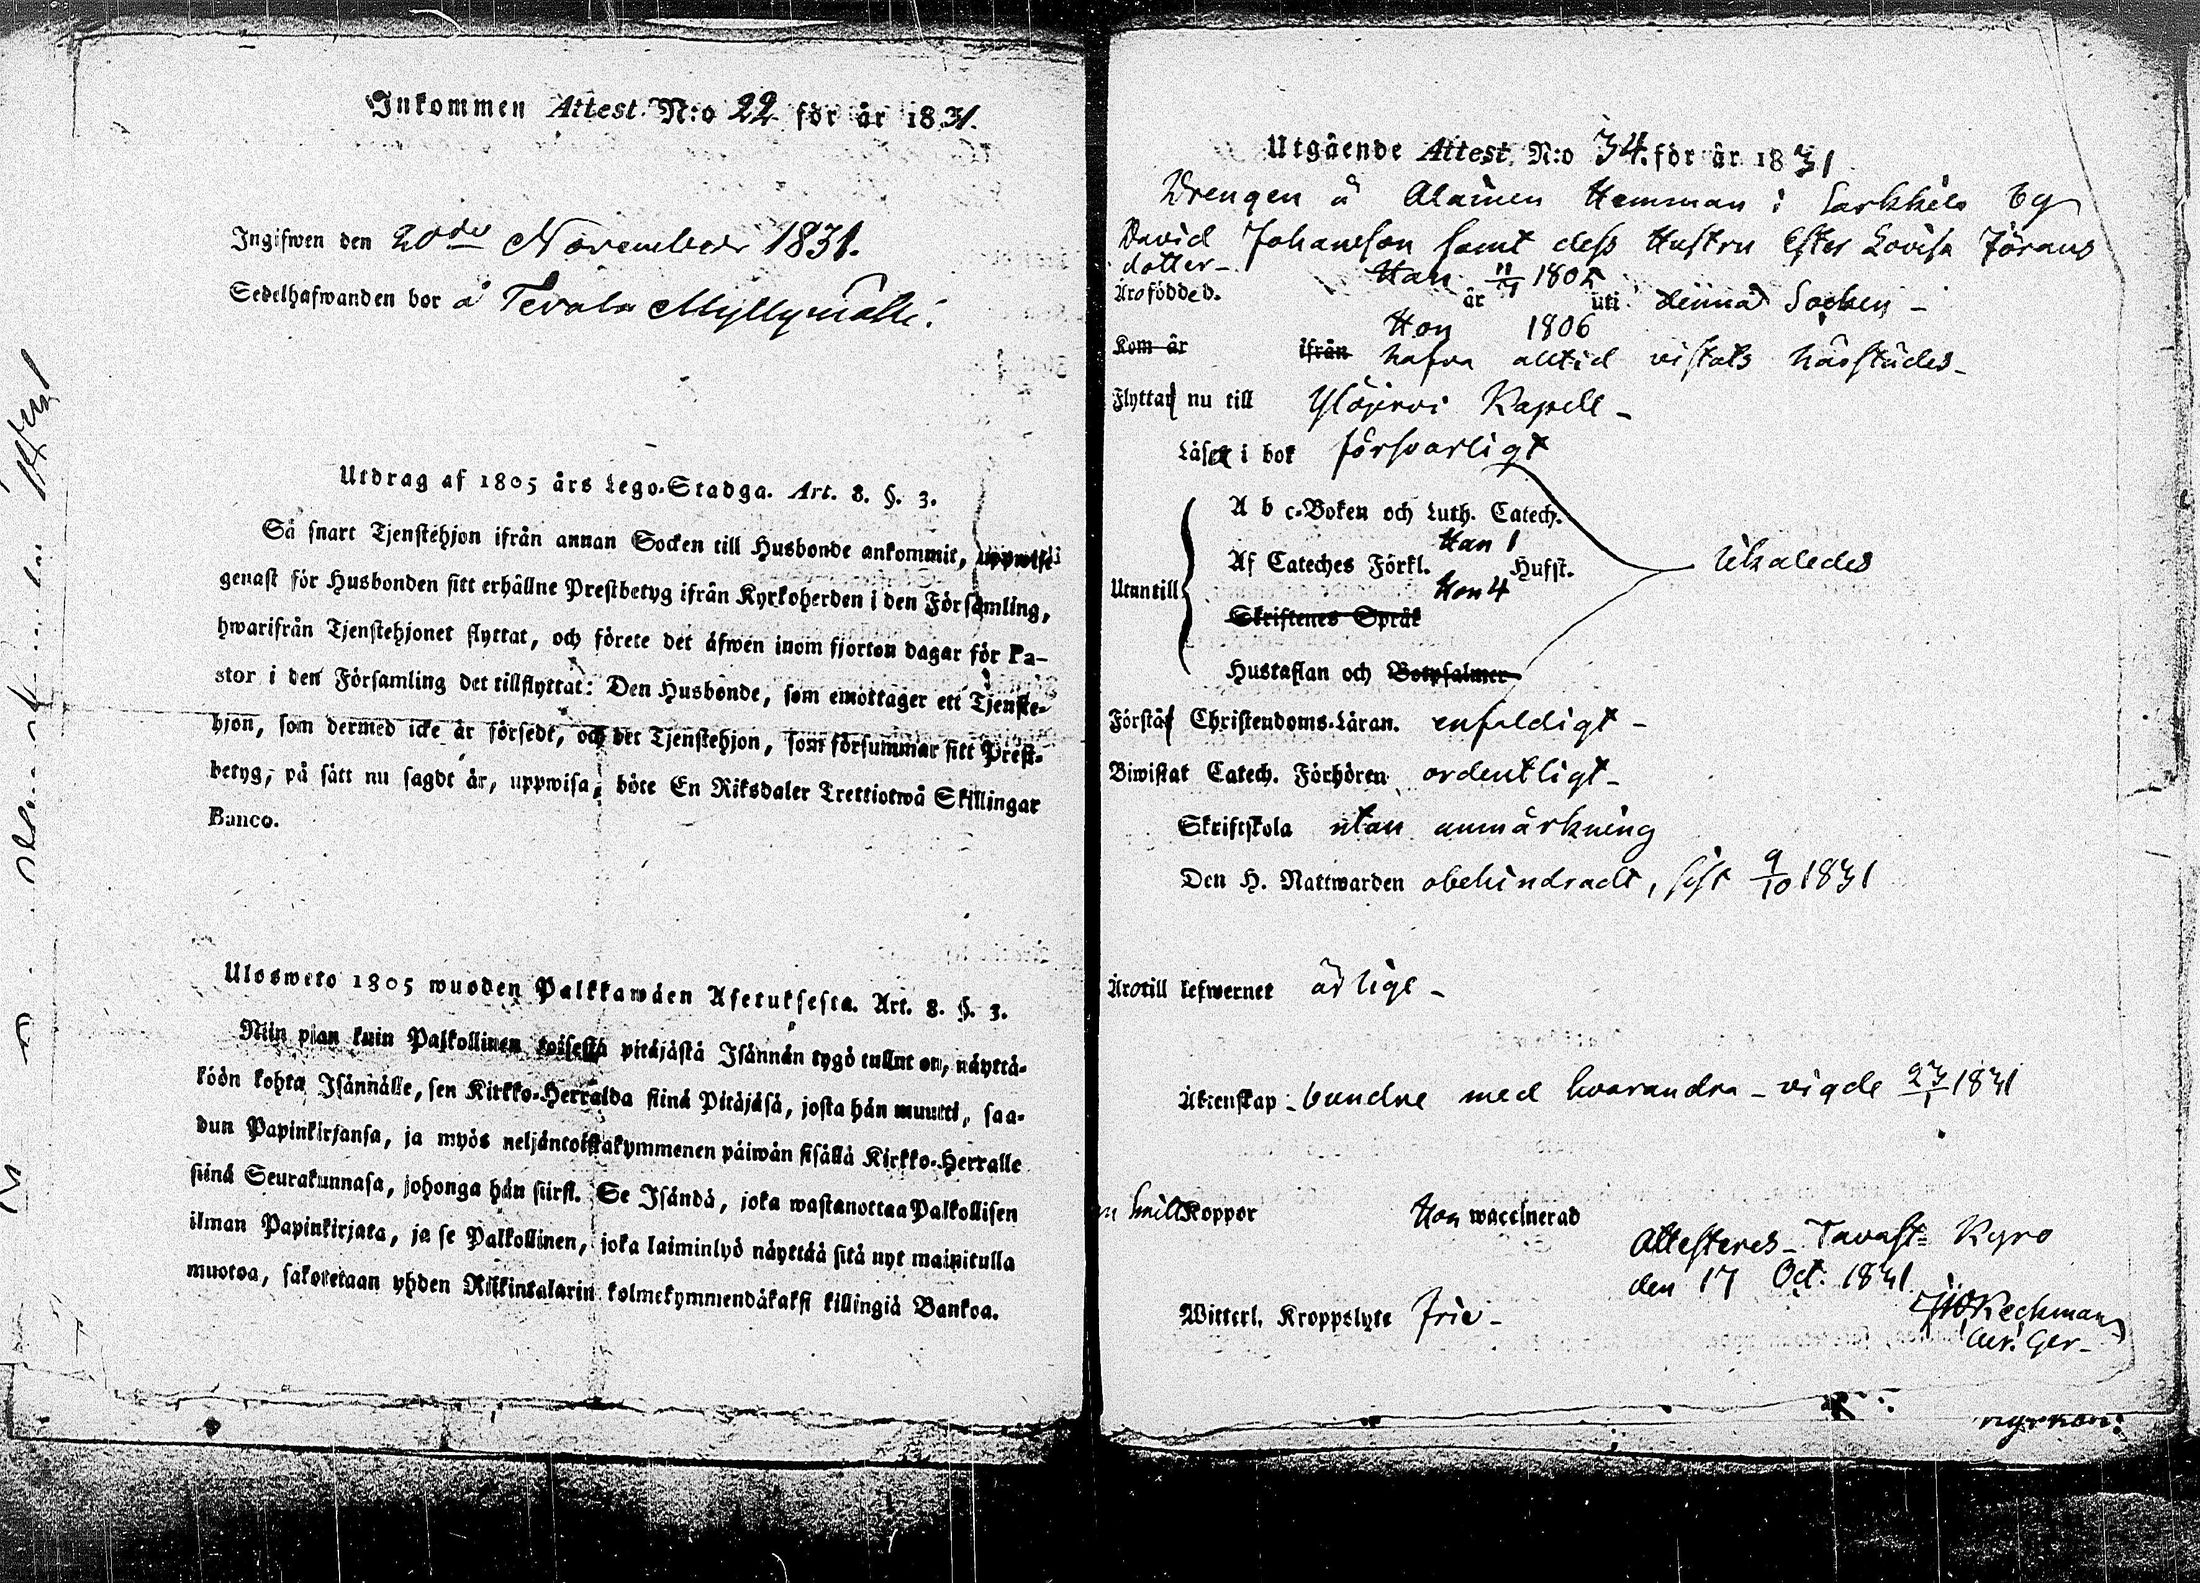 Inkommen Attest. N:o 22 för år 1831.
Ingifwen den 20de November 1831.
Sedelhafwanden bor å Tevala Myllymäki.
Utdrag af 1805 års Lego-Stadga. Art. 8. §. 3.
Så snart Tjenstehjon ifrån annan Socken till Husbonde ankommit, uppwise
genast för Husbonden sitt erhållne Prestbetyg ifrån Kyrkoherden i den Församling,
hwarifrån Tjenstehjonet flyttat, och förete det äfwen inom fjorton dagar för Pa-
stor i den Församling det tillflyttat: Den Husbonde, som emottager ett Tjenste-
hjon, som dermed icke är försedt, och det Tjenstehjon, som försummar sitt Prest-
betyg, på sätt nu sagdt är, uppwisa, böte En Riksdaler Trettiotwå Skillingar
Banco.
Ulosweto 1805 wuoden Palkkawäen Asetuksesta. Art. 8. §. 3.
Niin pian kuin Palkollinen toisesta pitäjästä Isännän tygö tullut on, näyttä-
köön kohta Isännälle, sen Kirkko-Herralda siinä Pitäjäsä, josta hän muutti, saa-
dun Papinkirjansa, ja myös neljäntoistakymmenen päiwän sisällä Kirkko-Herralle
siinä Seurakunnasa, johonga hän siirsi. Se Isändä, joka wastanottaa Palkollisen
ilman Papinkirjata, ja se Palkollinen, joka laiminlyö näyttää sitä nyt mainitulla
muotoa, sakotetaan yhden Riikintalarin kolmekymmendäkaksi killingiä Bankoa.
Utgående Attest. N:o 34. för år 1831
Drengen å Alainen Hemman i Sarkkila by
David Johansson samt dess Hustru Ester Lovisa Jörans
dotter-
Han 11/11 1802
Äro födde d. år uti denna Socken -
Hon 1806
Kom år ifrån hafva alltid vistats härstädes-
Flytta nu till Ylöjervi Kapell -
Läsa i bok försvarligt
A b c-Boken och Luth. Catech.
Han 1
Utantill Af Cateches Förkl. Hufst. likaledes
Hon 4
Skriftenes Språk
Hustaflan och Botpsalmer
Förstå Christendoms-Läran. enfaldigt -
Biwistat Catech. Förhören ordentligt -
Skriftskola utan anmärkning
Den H. Nattwarden obehindradt, sist 9/10 1831
Äro till lefwernet ärlige -
Äktenskap - bundne med hvarandra - vigde 23/1 1831
Koppor Hon waccinerad
Attesteres - Tavast- Kyro
den 17 Oct. 1831.
Witterl. Kroppslyte frie -